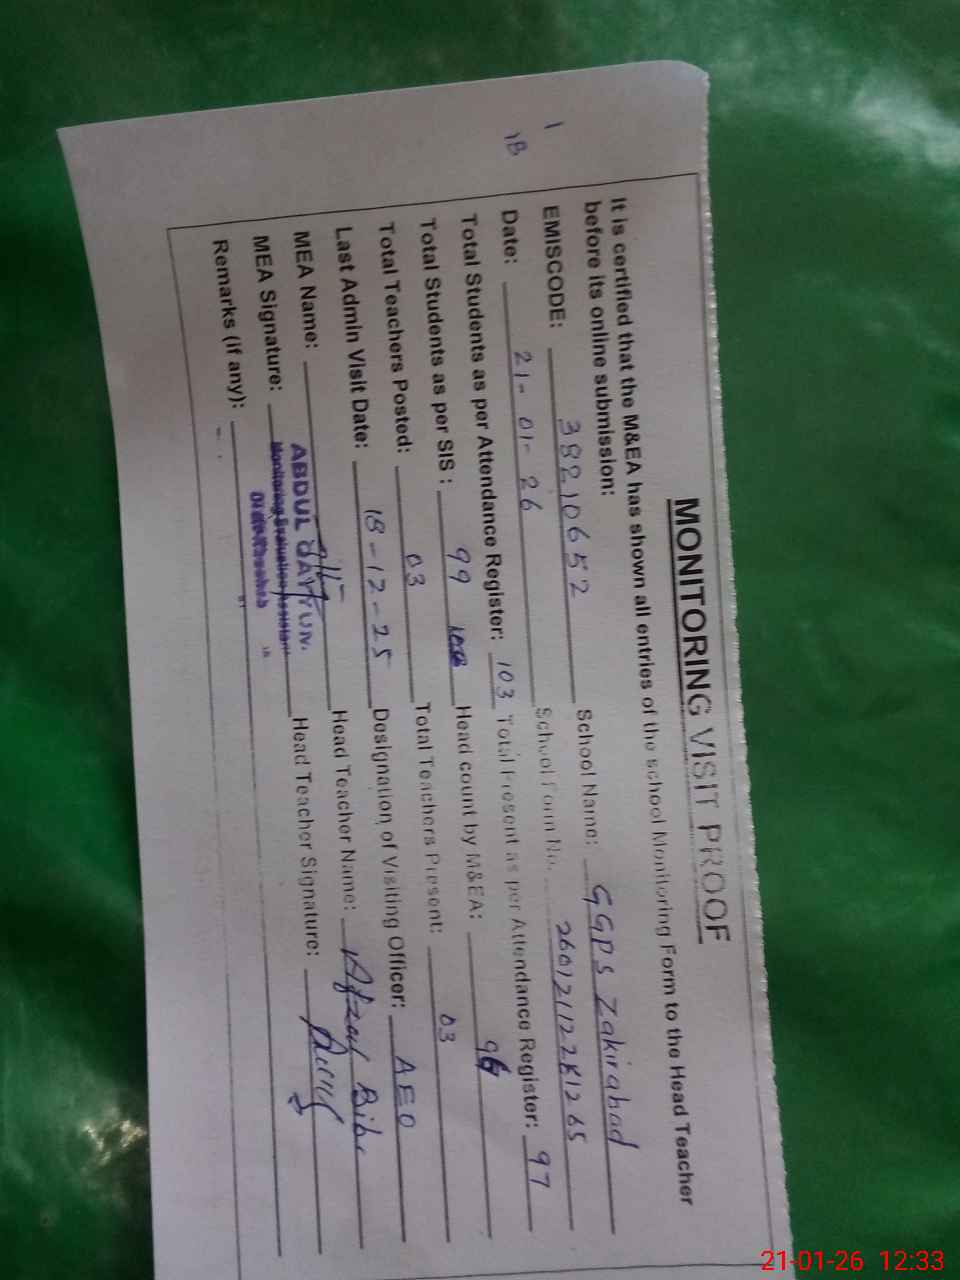 MONITORING VISIT PROOF
It is certified that the M&EA has shown all entries of the school Monitoring Form to the Head Teacher
before its online submission:
EMISCODE: 38210652 School Name: GGPS Zakirabad
Date: 21-01-26 School Form No. 26012112281265
Total Students as per Attendance Register: 103 Total Present as per Attendance Register: 97
Total Students as per SIS: 99 Head count by M&EA: 96
Total Teachers Posted: 03 Total Teachers Present: 03
Last Admin Visit Date: 18-12-25 Designation of Visiting Officer: AEO
MEA Name: ABDUL QAYYUM. Head Teacher Name: Bibi
MEA Signature: Monitoring Evaluation Assistant Head Teacher Signature:
Remarks (if any):
21-01-26 12:33